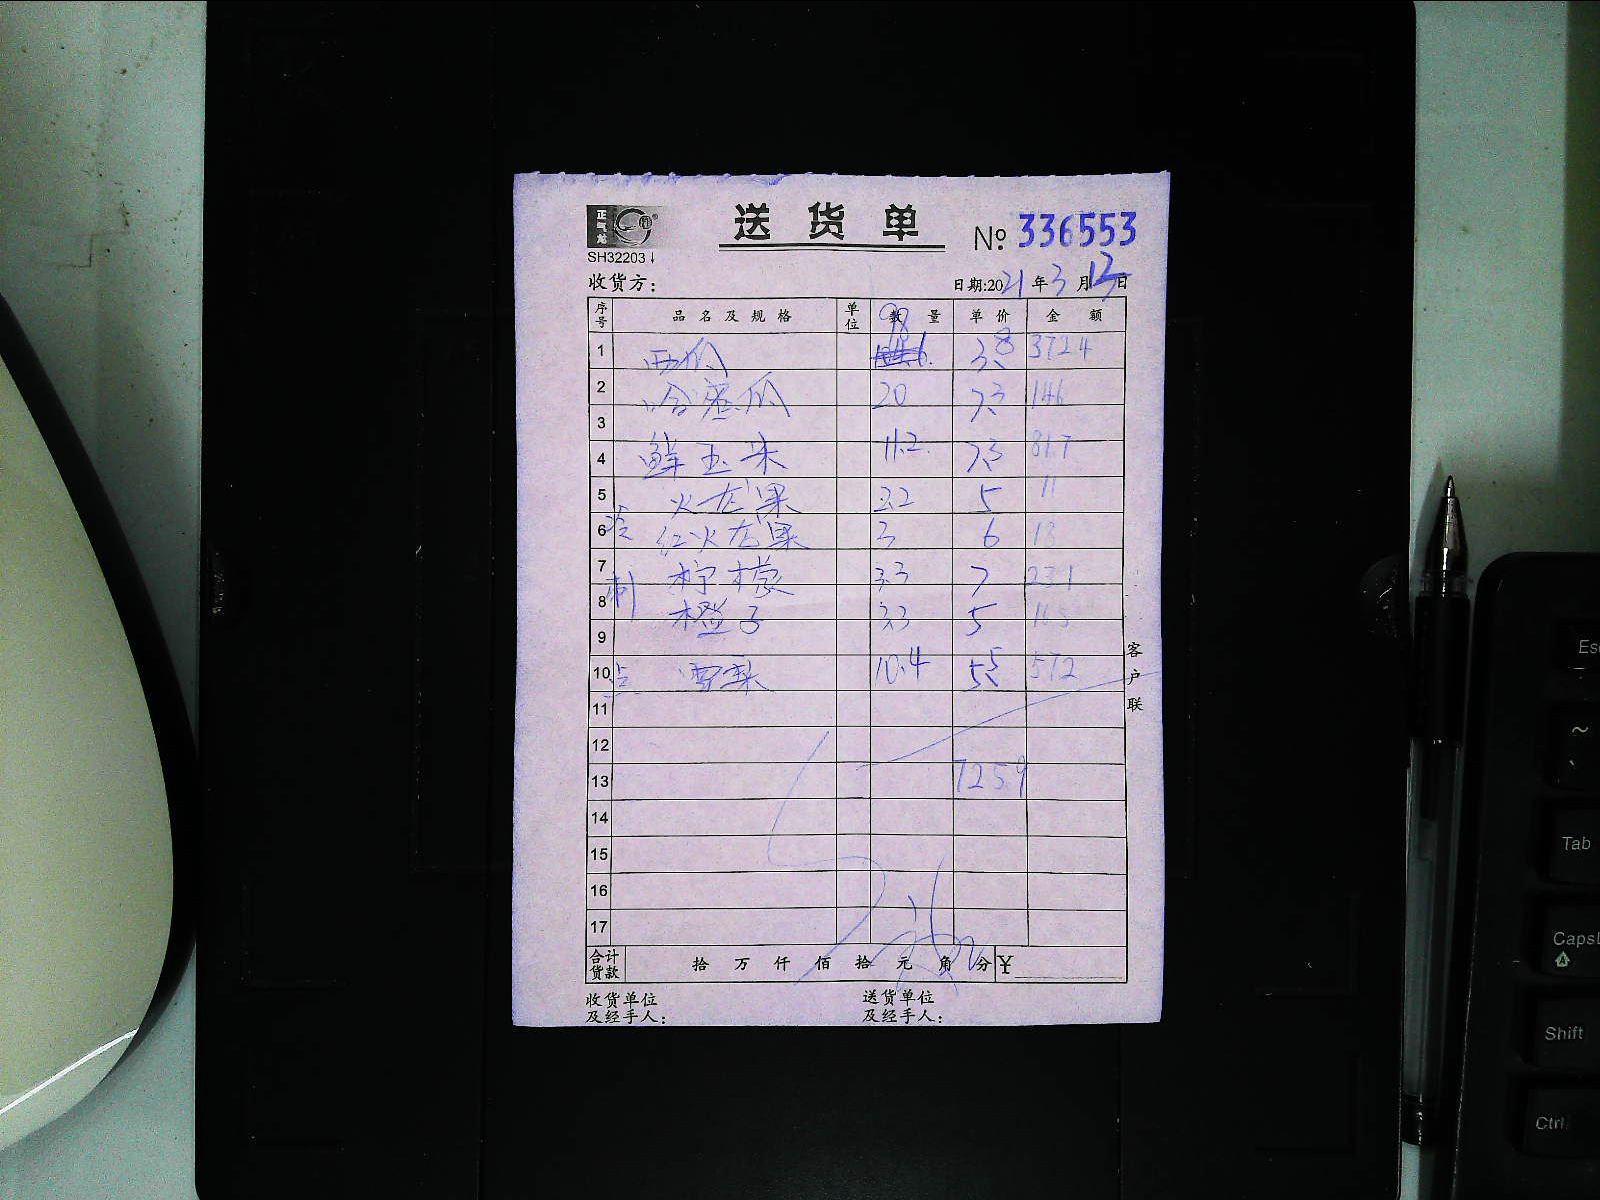 正气龙
送货单
№ 336553
SH32203↓
收货方：
日期:2021年3月13日
序号 品名及规格 单位 数量 单价 金额
98
1 西瓜 3.8 372.4
2 哈密瓜 20 7.3 146
3
4 鲜玉米 11.2 7.3 81.7
5 火龙果 2.2 5 11
6 红火龙果 3 6 18
7 柠檬 3.3 7 23.1
8 橙子 3.3 5 16.5
9
10 雪梨 10.4 5.5 57.2
冷
制
11
12
13 725.9
14
15
16
17
客户联
合计货款 拾 万 仟 佰 拾 元 角 分 ¥
收货单位及经手人：
送货单位及经手人：
Esc
~
Tab
CapsL
Shift
Ctrl